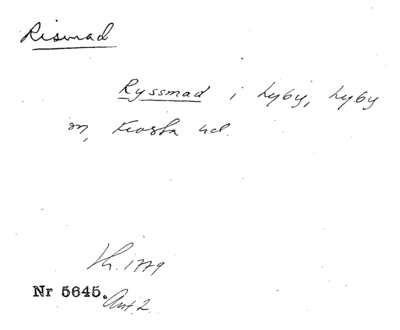 Rismad
Ryssmad i Lyby, Lyby
sn, Frosta hd.
Th. 1779
Nr 5645. Ant. 2.